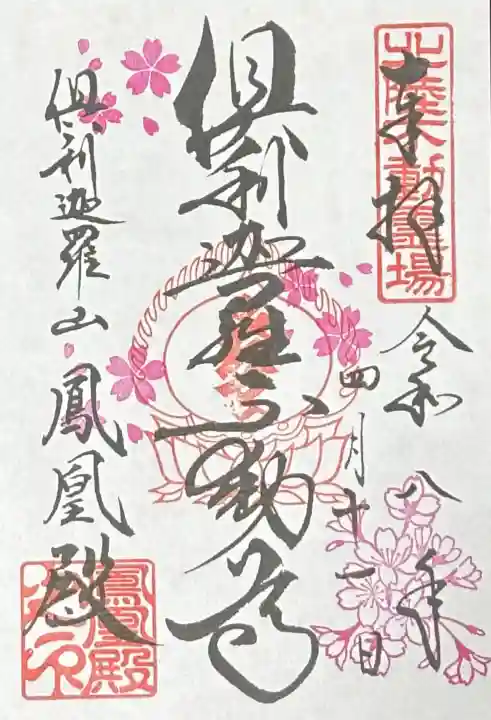 奉拝
北陸不動霊場
令和八年
四月十一日
倶利迦羅不動尊
倶利迦羅山 鳳凰殿
鳳凰殿